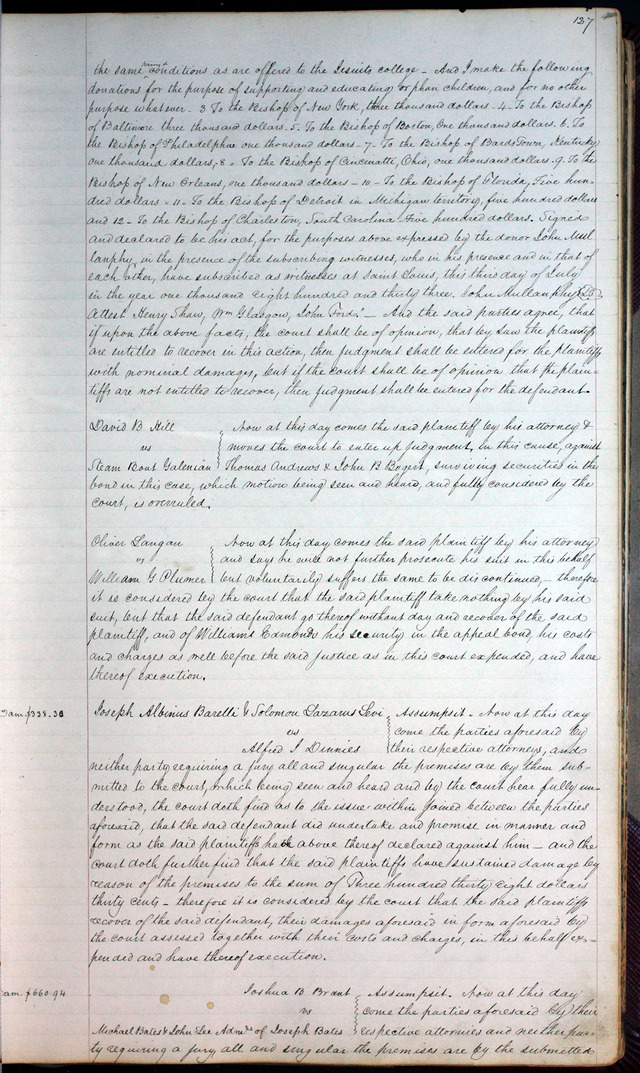 127
the same conditions as are offered to the Jesuits college - And I make the following
donations for the purpose of supporting and educating orphan children, and for no other
purpose whatever - 3 To the Bishop of New York, three thousand dollars - 4 - To the Bishop
of Baltimore three thousand dollars. 5. To the Bishop of Boston, One thousand dollars. 6. To
the Bishop of Philadelphia one thousand dollars - 7 - To the Bishop of Bards Town, Kentucky
one thousand dollars, 8 - To the Bishop of Cincinatti, Ohio, one thousand dollars. 9. To the
Bishop of New Orleans, one thousand dollars - 10 - To the Bishop of Florida, Five hun-
dred dollars - 11 - To the Bishop of Detroit in Michigan territory, five hundred dollars
and 12 - To the Bishop of Charleston, South Carolina Five hundred dollars. Signed
and declared to be his act, for the purposes above expressed by the donor John Mul
lanphy, in the presence of the subscribing witnesses, who in his presence and in that of
each other, have subscribed as witnesses at Saint Louis, this this day of July
in the year one thousand Eight hundred and thirty three. John Mullanphy
Attest Henry Shaw, Wm Glasgow, John Ford. - And the said parties agree, that
if upon the above facts, the court shall be of opinion, that by law the plaintiffs
are entitled to recover in this action, then judgment shall be entered for the plaintiffs
with nominal damages, but if the court shall be of opinion that the plain-
tiffs are not entitled to recover, then judgment shall be entered for the defendant.
David B Hill Now at this day comes the said plaintiff by his attorney &
vs moves the court to enter up judgment, in this cause, against
Steam Boat Galenian Thomas Andrews & John B Bogert, surviving securities in the
bond in this case, which motion being seen and heard, and fully considered by the
court, is overruled.
Oliver Langan Now at this day comes the said plaintiff by his attorney
vs and says he will not further prosecute his suit in this behalf
William G Plumer but voluntarily suffers the same to be discontinued, - therefore
it is considered by the court that the said plaintiff take nothing by his said
suit, but that the said defendant go thereof without day and recover of the said
plaintiff, and of William S Edmonds his security in the appeal bond, his costs
and charges as well before the said Justice as in this court expended, and have
thereof execution.
Dam. $338.30 Joseph Albinus Barelli & Solomon Lazarus Levi Assumpsit. Now at this day
vs come the parties aforesaid by
Alfred I Dinnies their respective attorneys, and
neither party requiring a jury all and singular the premises are by them sub-
mitted to the court, which being seen and heard and by the court hear fully un-
derstood, the court doth find as to the issue within joined between the parties
aforesaid, that the said defendant did undertake and promise in manner and
form as the said plaintiffs have above thereof declared against him - and the
court doth further find that the said plaintiffs have sustained damage by
reason of the premises to the sum of Three hundred thirty eight dollars
thirty cents - therefore it is considered by the court that the said plaintiffs
recover of the said defendant, their damages aforesaid in form aforesaid by
the court assessed together with their costs and charges, in this behalf ex-
pended and have thereof execution.
am. $660.94 Joshua B Brant Assumpsit. Now at this day
vs come the parties aforesaid by their
Michael Bates & John Lee Admrs of Joseph Bates respective attornies and neither par-
ty requiring a jury all and singular the premises are by the submitted